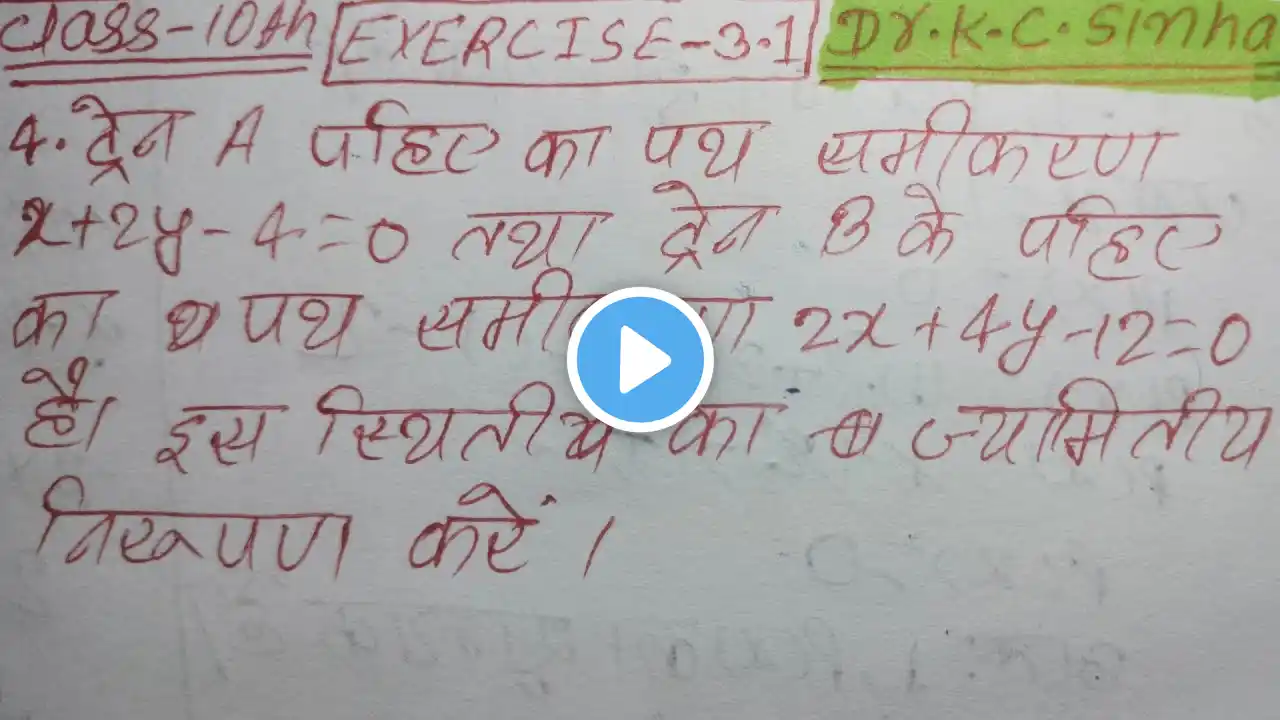 Class-10th EXERCISE-3.1 Dr.K.C.Sinha
4. ट्रेन A पहिए का पथ समीकरण
x+2y-4=0 तथा ट्रेन B के पहिए
का पथ समीकरण 2x+4y-12=0
है। इस स्थितीय का ज्यामितीय
निरूपण करें।